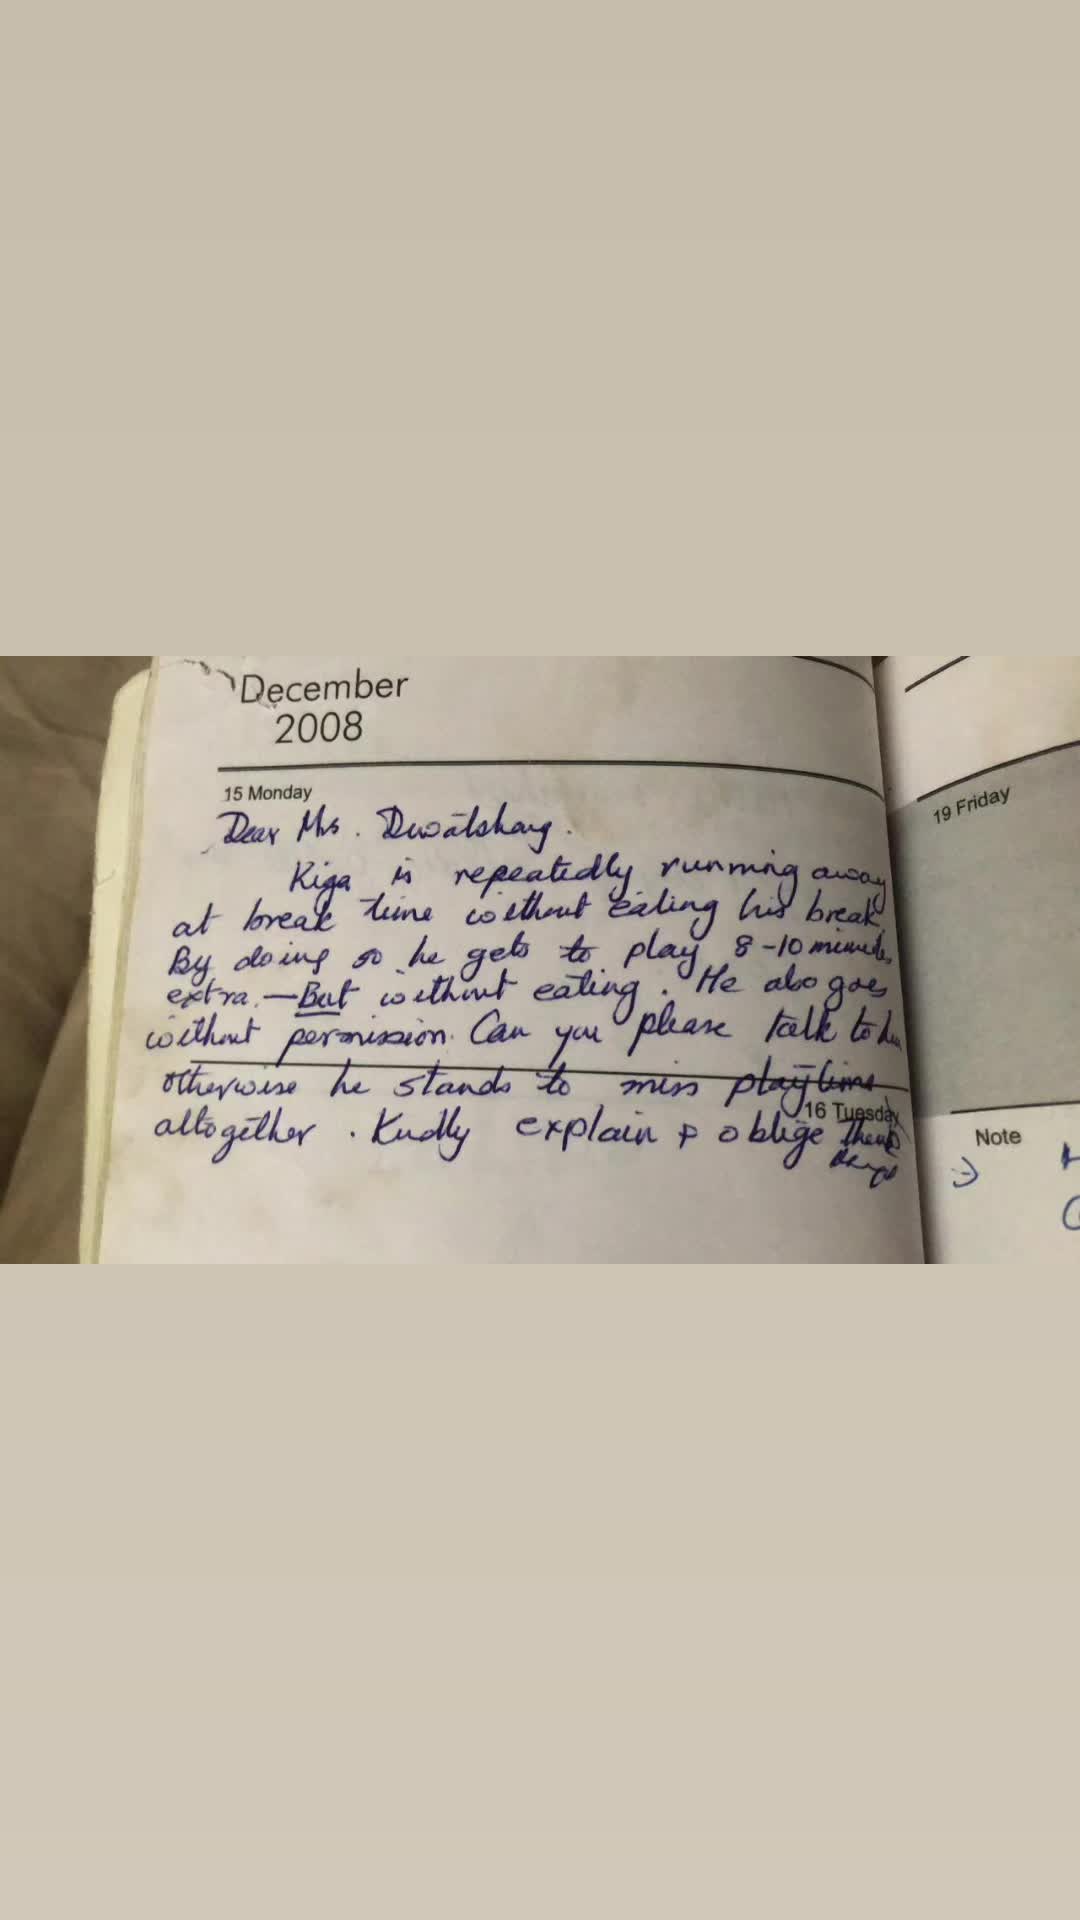 December
2008
15 Monday
Dear Mrs.
Kiga is repeatedly running away
at break time without eating his break
By doing so he gets to play 8-10 minutes
extra. — But without eating. He also goes
without permission. Can you please talk to him
otherwise he stands to miss playtime
16 Tuesday
altogether. Kindly explain & oblige thank
19 Friday
Note